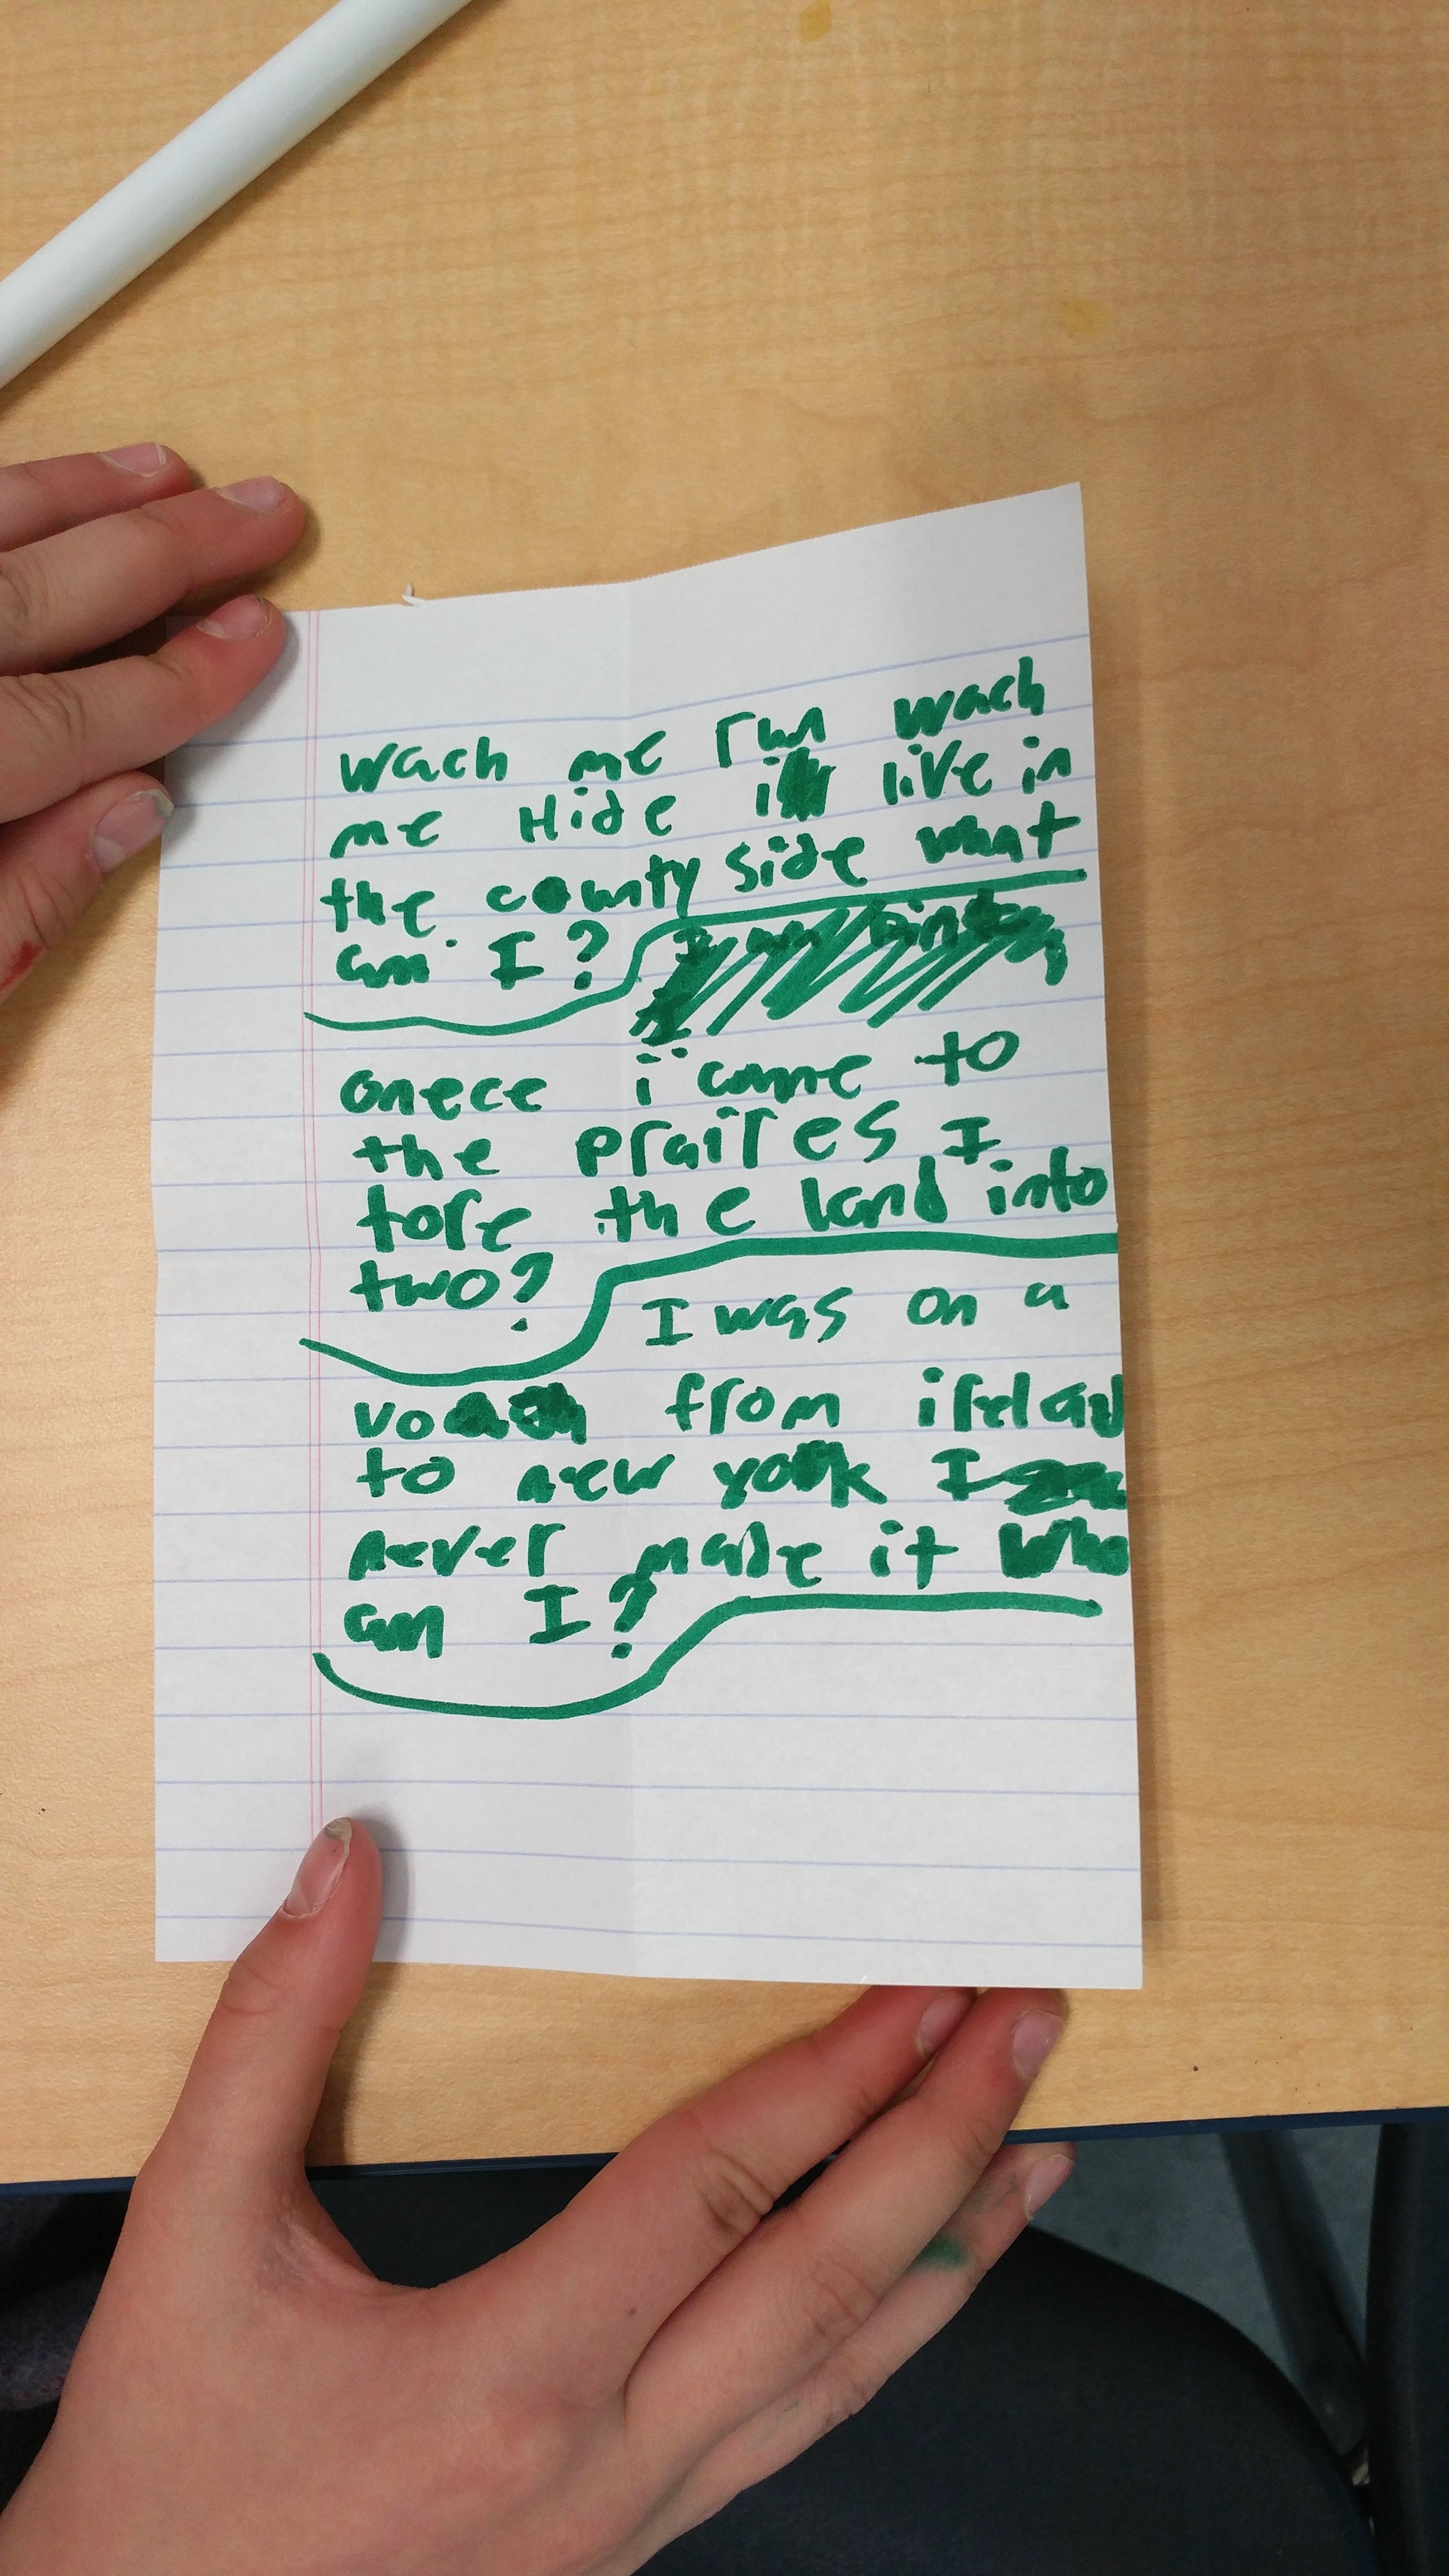 wach me run wach
me Hide i live in
the county side what
am I?
onece i came to
the prairies I
tore the land into
two?
I was on a
from irelad
to new york I
never made it Who
am I?